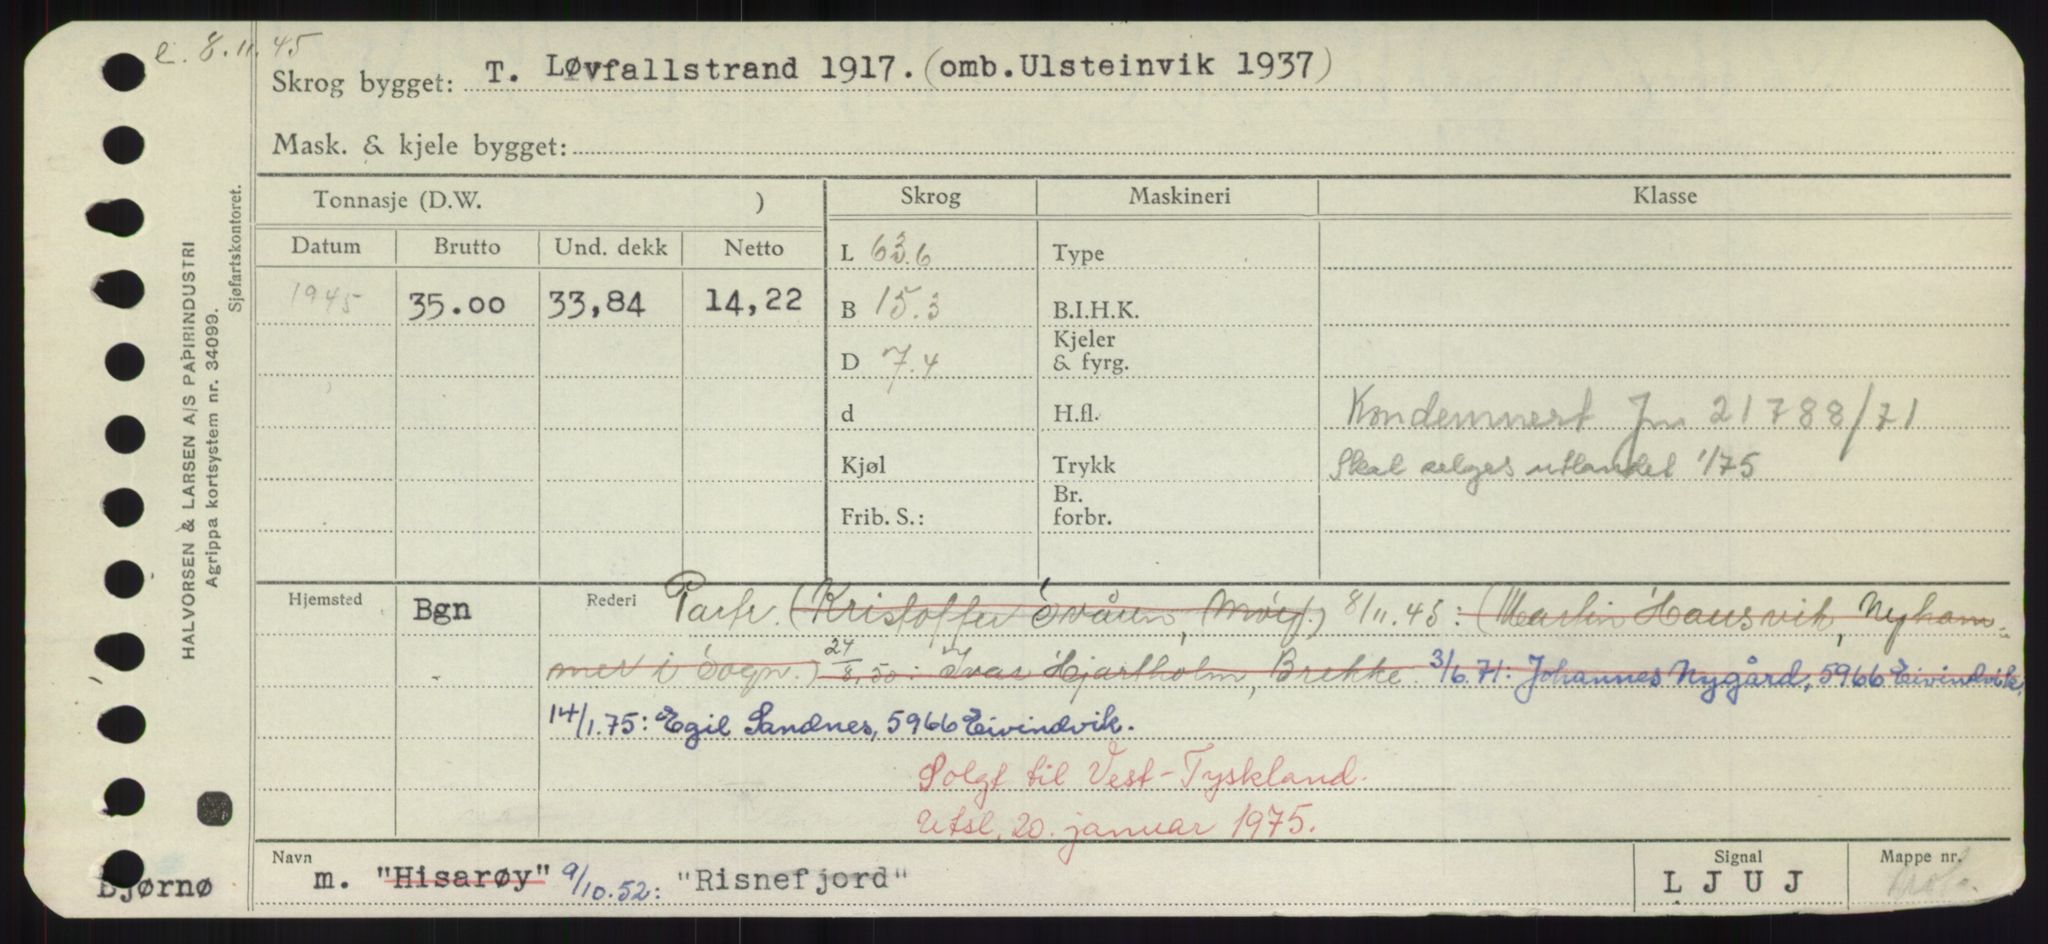 e. 8.11.45
Skrog bygget: T. Løvfallstrand 1917. (omb. Ulsteinvik 1937)
Mask. & kjele bygget:
Tonnasje (D.W. ) Skrog Maskineri Klasse
Datum Brutto Und. dekk Netto
L 63.6 Type
1945 35.00 33,84 14,22
B 15.3 B.I.H.K.
D 7.4 Kjeler & fyrg.
d H.fl. Kondemnert Jnr 21788/71
Kjøl Trykk Skal selges utlandet 1/75
Frib. S.: Br. forbr.
Hjemsted Bgn Rederi Partr. (Kristoffer Svåren, ) 8/11.45: (Martin Hausvik, Nyham-
mer i Sogn.) 24/8.50: Ivar Hjartholm, Brekke. 3/6.71: Johannes Nygård, 5966 Eivindvik.
14/1.75: Egil Sandnes, 5966 Eivindvik.
Solgt til Vest-Tyskland.
Utsl. 20. januar 1975.
Navn m. "Hisarøy" 9/10.52: "Risnefjord"
Signal L J U J
Mappe nr.
Bjørnø
HALVORSEN & LARSEN A/S PAPIRINDUSTRI
Agrippa kortsystem nr. 34099.
Sjøfartskontoret.